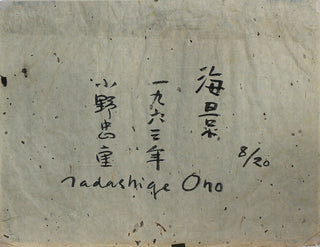 海景
一九六三年
小野忠重
8/20
Tadashige Ono